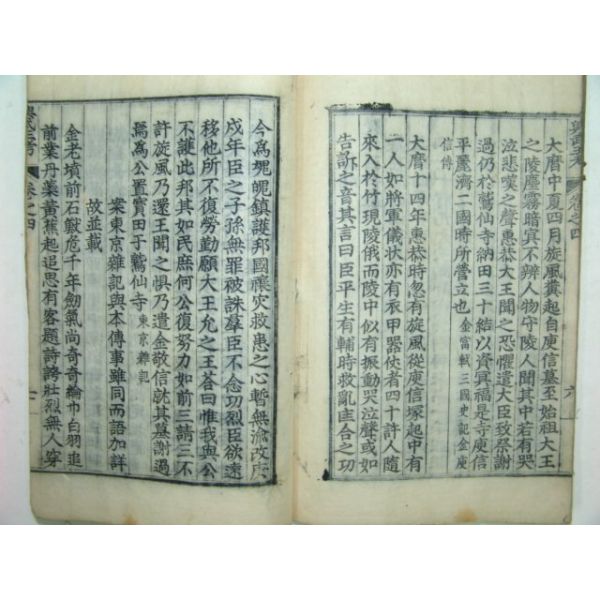 卷之四
大曆中夏四月旋風起自庾信墓至始祖大王
之陵塵霧暗冥不辨人物守陵人聞其中若有哭
泣悲嘆之聲惠恭大王聞之恐懼遣大臣致祭謝
過仍於鷲仙寺納田三十結以資冥福是寺庾信
平麗濟二國時所營立也 金富軾三國史記金庾
信傳
大曆十四年惠恭時忽有旋風從庾信塚起中有
一人如將軍儀狀亦有衣甲器仗者四十許人隨
來入於竹現陵俄而陵中似有振動哭泣聲或如
告訴之音其言曰臣平生有輔時救亂匡合之功
六
今爲魂魄鎭護邦國攘灾救患之心暫無渝改庚
戌年臣之子孫無罪被誅羣臣不念功烈臣欲遠
移他所不復勞勤願大王允之王荅曰惟我與公
不護此邦其如民庶何公復努力如前三請三不
許旋風乃還王聞之懼乃遣金敬信就其墓謝過
焉爲公置寶田于鷲仙寺 東京雜記
案東京雜記與本傳事雖同而語加詳
故並載
金老墳前石獸危千年劒氣尚奇奇綸巾白羽追
前業丹荔黃蕉起追思有客題詩誇壯烈無人穿
卷之四
七